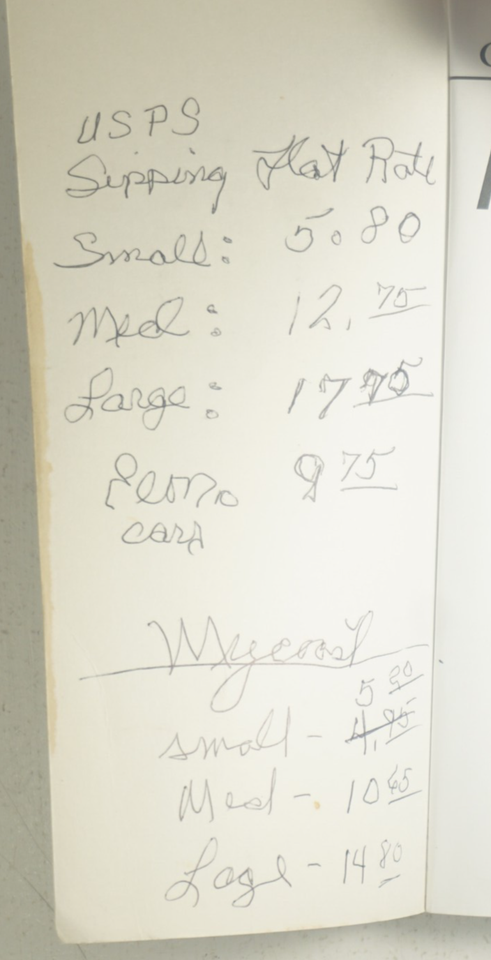 USPS
Sipping Flat Rate
Small: 5.80
Med: 12.75
Large: 17 75
Econo 9 75
card
My cost
5 20
small - 4.95
Med - 10 65
Lage - 14 80